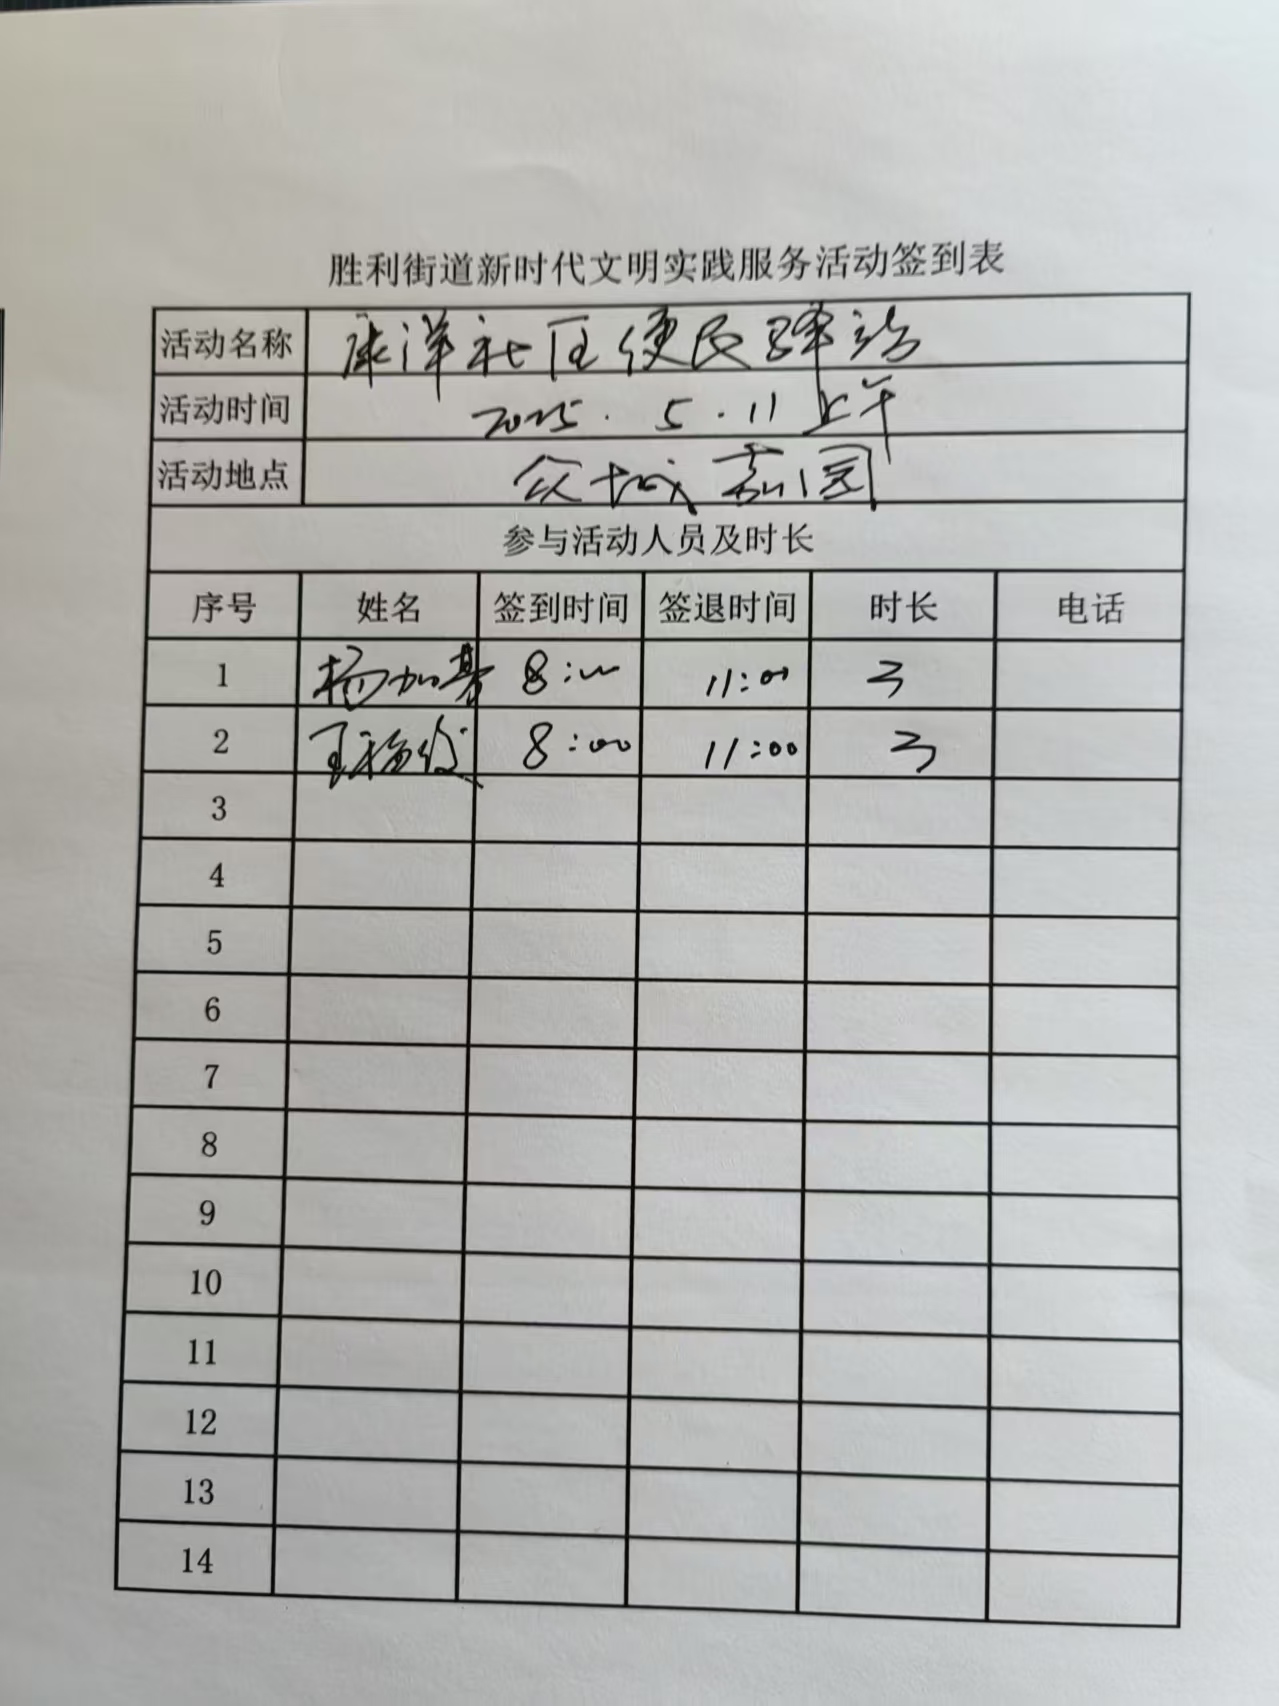 胜利街道新时代文明实践服务活动签到表
活动名称 康洋社区便民驿站
活动时间 2025.5.11上午
活动地点 众城嘉园
参与活动人员及时长
序号 姓名 签到时间 签退时间 时长 电话
1 杨加基 8:00 11:00 3
2 王福俊 8:00 11:00 3
3
4
5
6
7
8
9
10
11
12
13
14